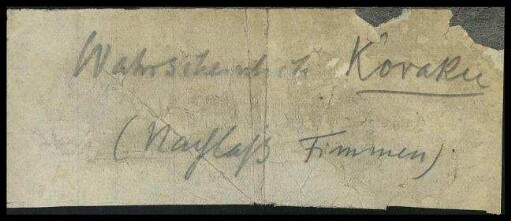 Wahrscheinlich Koraku
(Nachlaß Fimmen)